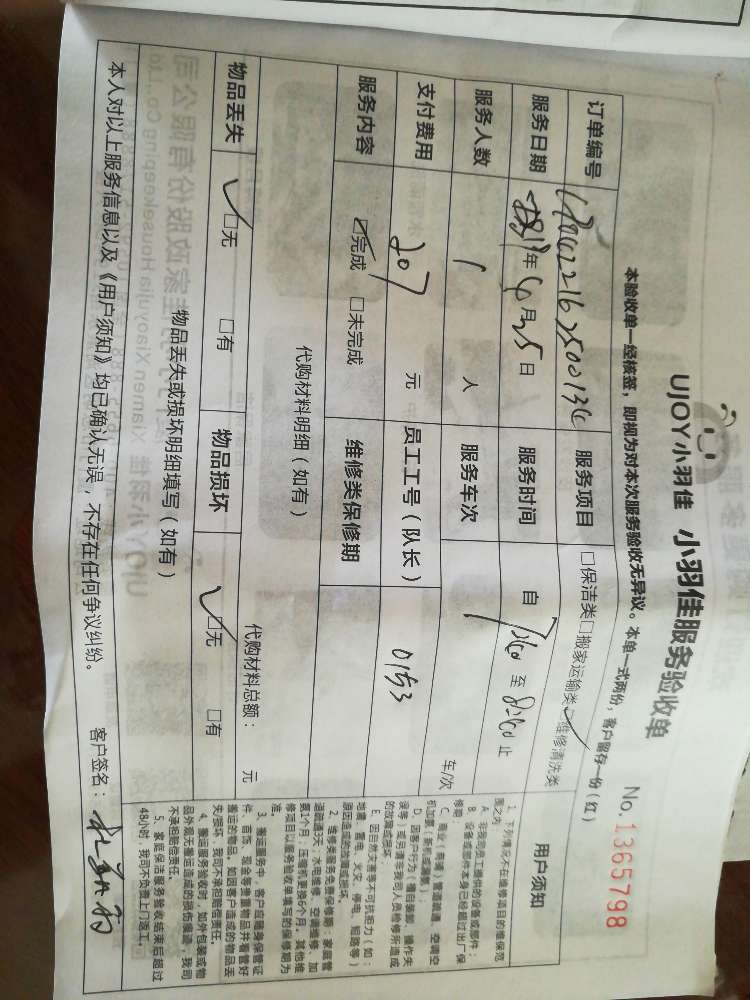 UJOY小羽佳 小羽佳服务验收单
No.1365798
本验收单一经核签，即视为对本次服务验收无异议。本单一式两份，客户留存一份（红）
订单编号 服务项目 □保洁类□搬家运输类□维修清洗类
服务日期 年4月25日 服务时间 自7:00至8:00止
服务人数 1人 服务车次 车/次
支付费用 207元 员工工号（队长） 0153
服务内容 ☑完成 □未完成 维修类保修期
代购材料明细（如有） 代购材料总额： 元
物品丢失 ✓□无 □有 物品损坏 ✓□无 □有
物品丢失或损坏明细填写（如有）
本人对以上服务信息以及《用户须知》均已确认无误，不存在任何争议纠纷。 客户签名：
用户须知
1、下列情况不在维修项目的维保范
围之内：
A、非我司员工提供的设备或部件；
B、设备或部件本身已经超过出厂保
修期；
C、商业（商铺）管道疏通、空调空
机加氟（新机或漏氟）；
D、因客户行为（擅自装卸、操作失
误等）或另请非我司人员检修所造成
的故障或损坏；
E、因自然灾害等不可抗拒力（如：
地震、雷电、火灾、停电、短路等）
原因造成的故障或损坏。
2、维修类服务免费保修期：家庭管
道疏通3天，水电维修、空调维修、加
氟1个月；压缩机更换6个月，其他维
修项目以服务验收单填写的保修期为
准。
3、搬运服务中，客户应随身保管证
件、首饰、现金等贵重物品并看管好
搬运的物品。如因客户造成的物品丢
失/损坏，我司不承担赔偿责任。
4、搬运服务验收时，如外包装或物
品外观无搬运造成的损伤痕迹，我司
不承担赔偿责任。
5、家庭保洁服务验收结束后超过
48小时，我司不负责上门返工。